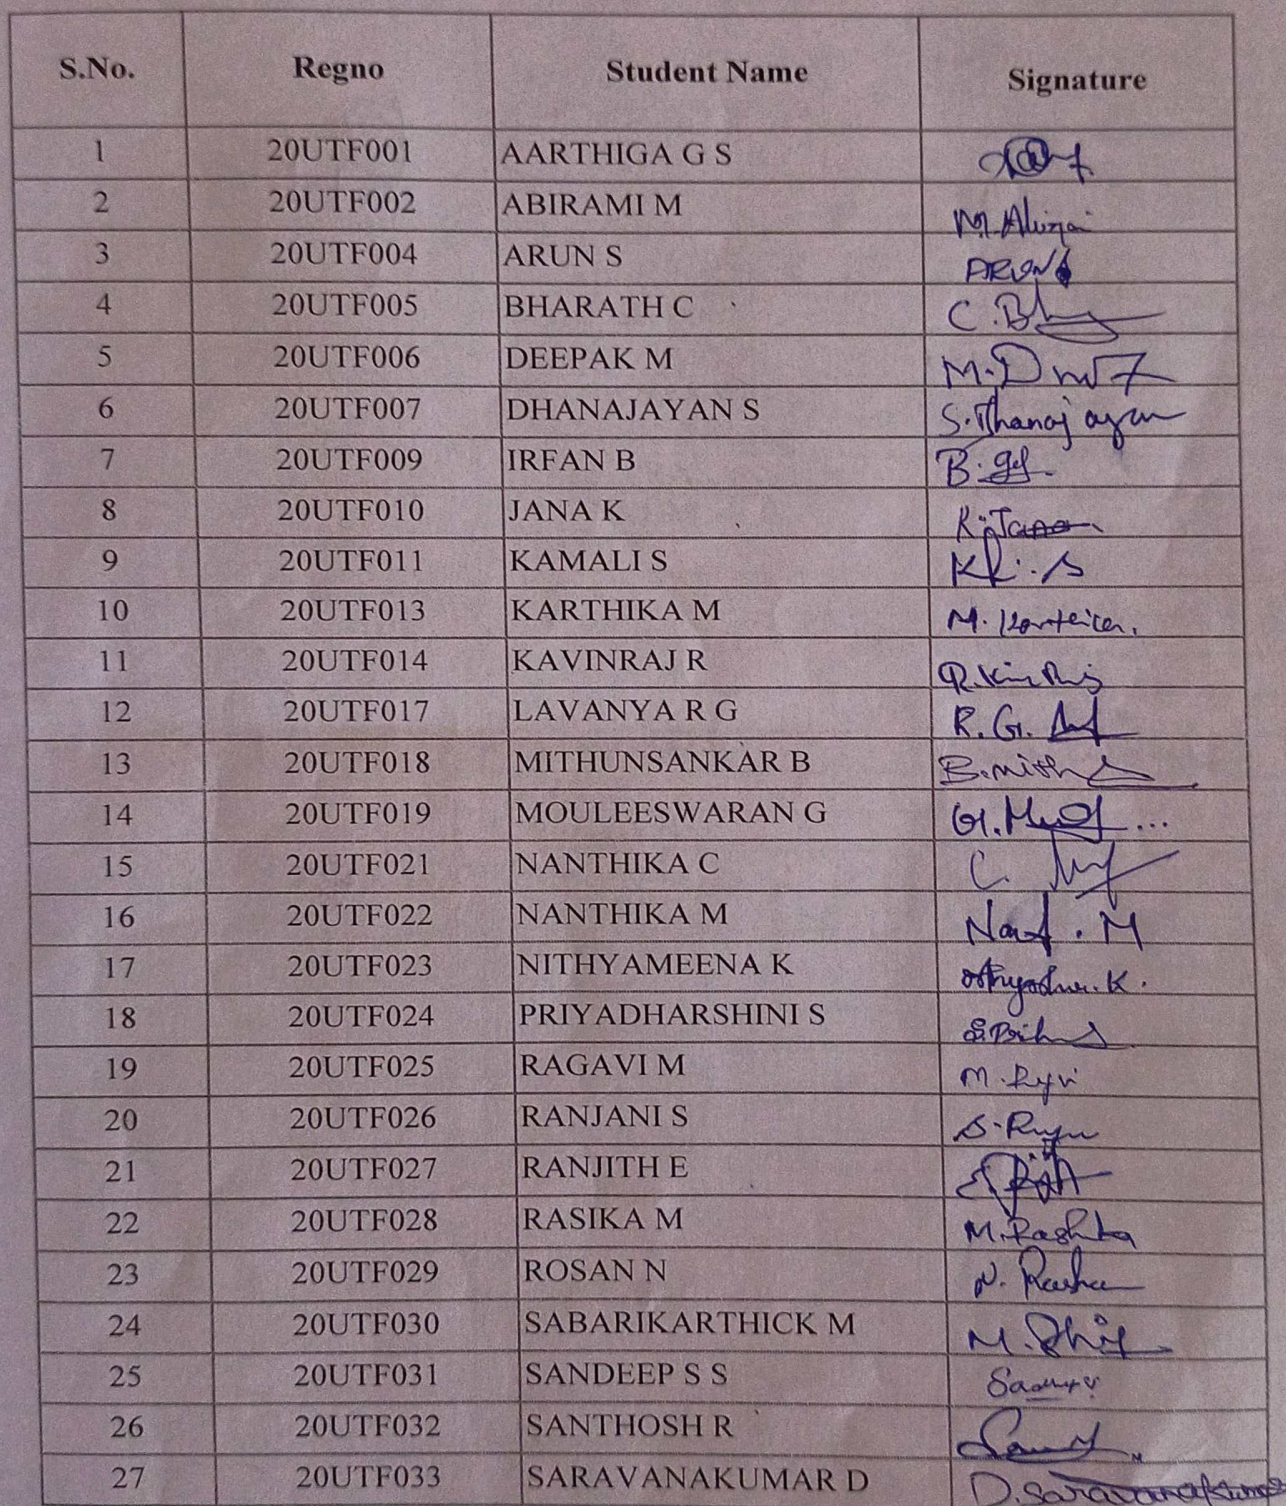 S.No. Regno Student Name Signature
1 20UTF001 AARTHIGA G S
2 20UTF002 ABIRAMI M M.
3 20UTF004 ARUN S ARUN
4 20UTF005 BHARATH C C.
5 20UTF006 DEEPAK M M.
6 20UTF007 DHANAJAYAN S S.
7 20UTF009 IRFAN B B.
8 20UTF010 JANA K K. Jana
9 20UTF011 KAMALI S
10 20UTF013 KARTHIKA M M.
11 20UTF014 KAVINRAJ R R.
12 20UTF017 LAVANYA R G R. G.
13 20UTF018 MITHUNSANKAR B B.
14 20UTF019 MOULEESWARAN G G.
15 20UTF021 NANTHIKA C C.
16 20UTF022 NANTHIKA M M
17 20UTF023 NITHYAMEENA K K.
18 20UTF024 PRIYADHARSHINI S
19 20UTF025 RAGAVI M M.
20 20UTF026 RANJANI S S.
21 20UTF027 RANJITH E
22 20UTF028 RASIKA M M.
23 20UTF029 ROSAN N N.
24 20UTF030 SABARIKARTHICK M M.
25 20UTF031 SANDEEP S S
26 20UTF032 SANTHOSH R
27 20UTF033 SARAVANAKUMAR D D.